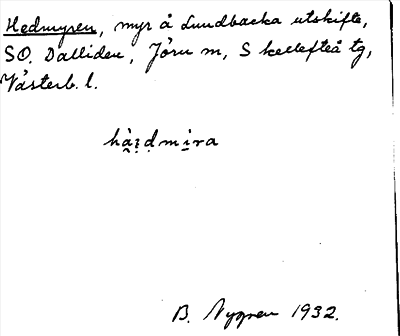 Hedmyren, myr å Lundbacka utskifte,
SO. Dalliden, Jörn m, Skellefteå tg,
Västerb. l.
hà̯i̯ḍmi̯ra
B. Nygren 1932.